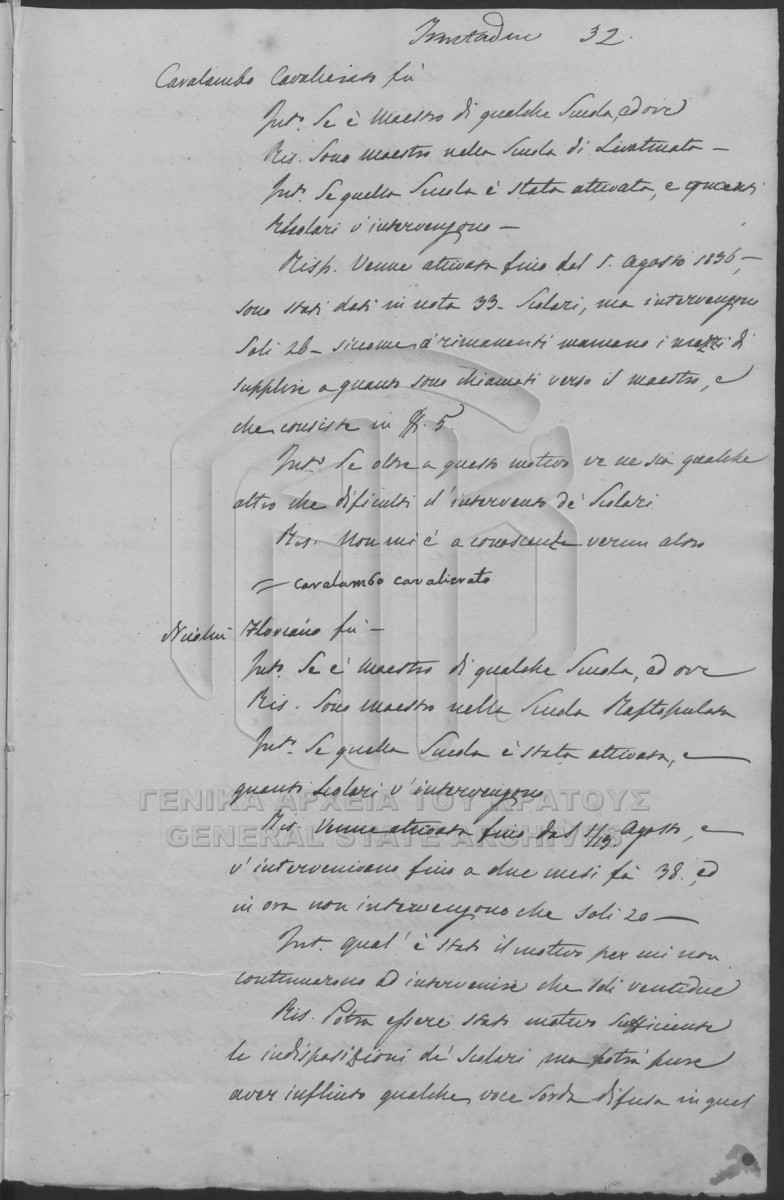 Trentadue 32.
Caralambo Cavalierato fù
Int.o Se è Maestro di qualche Scuola, ed ove
Ris. Sono maestro nella Scuola di Livatinata —
Int.o Se quella Scuola è stata attivata, e quanti
Scolari v'intervengono —
Risp. Venne attivata fino dal 1. Agosto 1836,—
sono stati dati in nota 33- Scolari, ma intervengono
soli 26- siccome a' rimanenti mancano i mezzi di
supplire a quanto sono chiamati verso il maestro, e
che consiste in 5.
Int.o Se oltre a questo motivo ve ne sia qualche
altro che dificulti l'intervento de' Scolari
Ris. Non mi è a conoscenza verun altro
caralambo cavalierato
Floriano fù —
Int.o Se è Maestro di qualche Scuola, ed ove
Ris. Sono maestro nella Scuola Raftopulata
Int.o Se quella Scuola è stata attivata, e —
quanti Scolari v'intervengono
Ris. Venne attivata fino dal 1/13 Agosto, e —
v'intervenivano fino a due mesi fà 38., ed
in ora non intervengono che soli 20 —
Int. qual' è stato il motivo per cui non
continuarono ad intervenire che soli ventidue
Ris. Potrà essere stato motivo sufficiente
le indisposizioni de' Scolari ma potrà pure
aver influito qualche voce sorda difusa in quel
ΓΕΝΙΚΑ ΑΡΧΕΙΑ ΤΟΥ ΚΡΑΤΟΥΣ
GENERAL STATE ARCHIVES